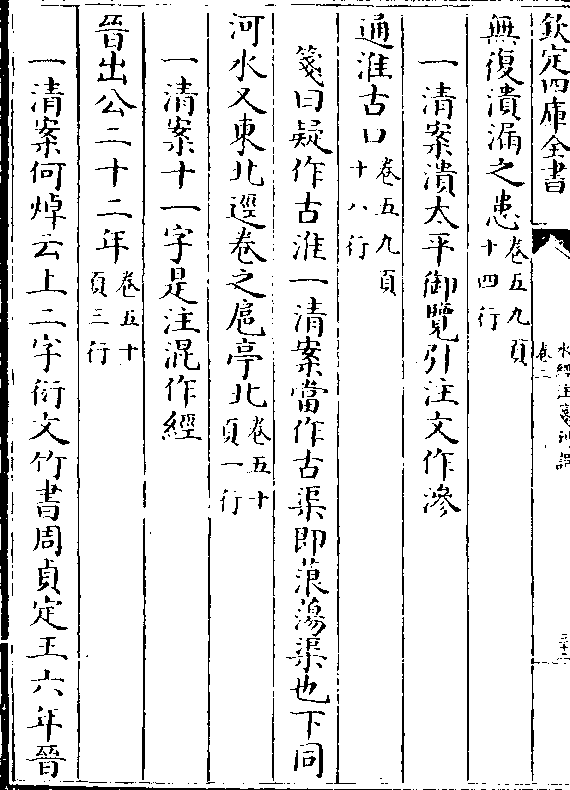 欽定四庫全書
水經注箋刊誤
卷二
三十二
無復潰漏之患卷五九頁十四行
一清案潰太平御覽引注文作滲
通淮古口卷五九頁十八行
箋曰疑作古淮一清案當作古渠即蒗蕩渠也下同
河水又東北逕卷之扈亭北卷五十頁一行
一清案十一字是注混作經
晉出公二十二年卷五十頁三行
一清案何焯云上二字衍文竹書周貞定王六年晉